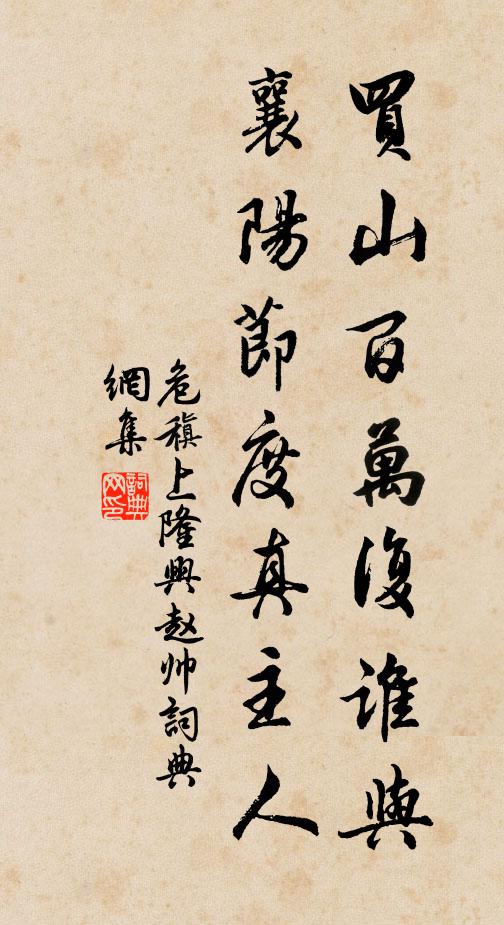 買山百萬復誰與
襄陽節度真主人
危稹上隆興趙帅詞典
網集
詞典
网印